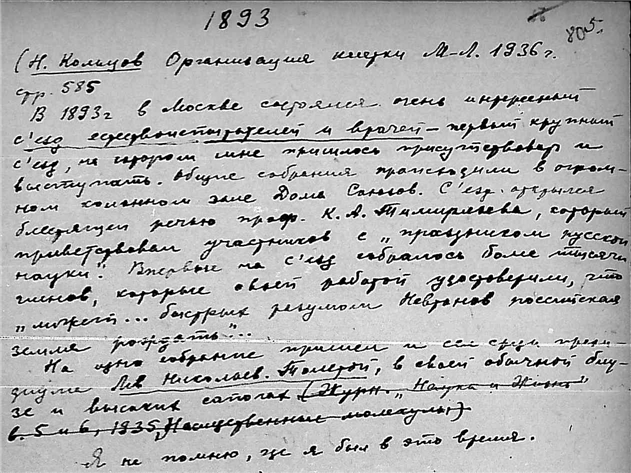 1893
805.
(Н. Кольцов Организация клетки М-Л. 1936 г.
стр. 585
В 1893 г в Москве состоялся очень интересный
с'езд естествоиспытателей и врачей – первый крупный
с'езд, на котором мне пришлось присутствовать и
выступать. Общие собрания происходили в огром-
ном колонном зале Дома Союзов. С'езд открылся
блестящей речью проф. К. А. Тимирязева, который
приветствовал участников с „праздником русской
науки". Впервые на с'езд собралось более тысячи
членов, которые своей работой удостоверили, что
„может... быстрых разумом Невтонов российская
земля рождать"...
На одно собрание пришел и сел среди прези-
диума Лев Николаев. Толстой, в своей обычной блу-
зе и высоких сапогах (Журн. „Наука и Жизнь"
в. 5 и 6, 1935, Наследственные молекулы)
Я не помню, где я был в это время.